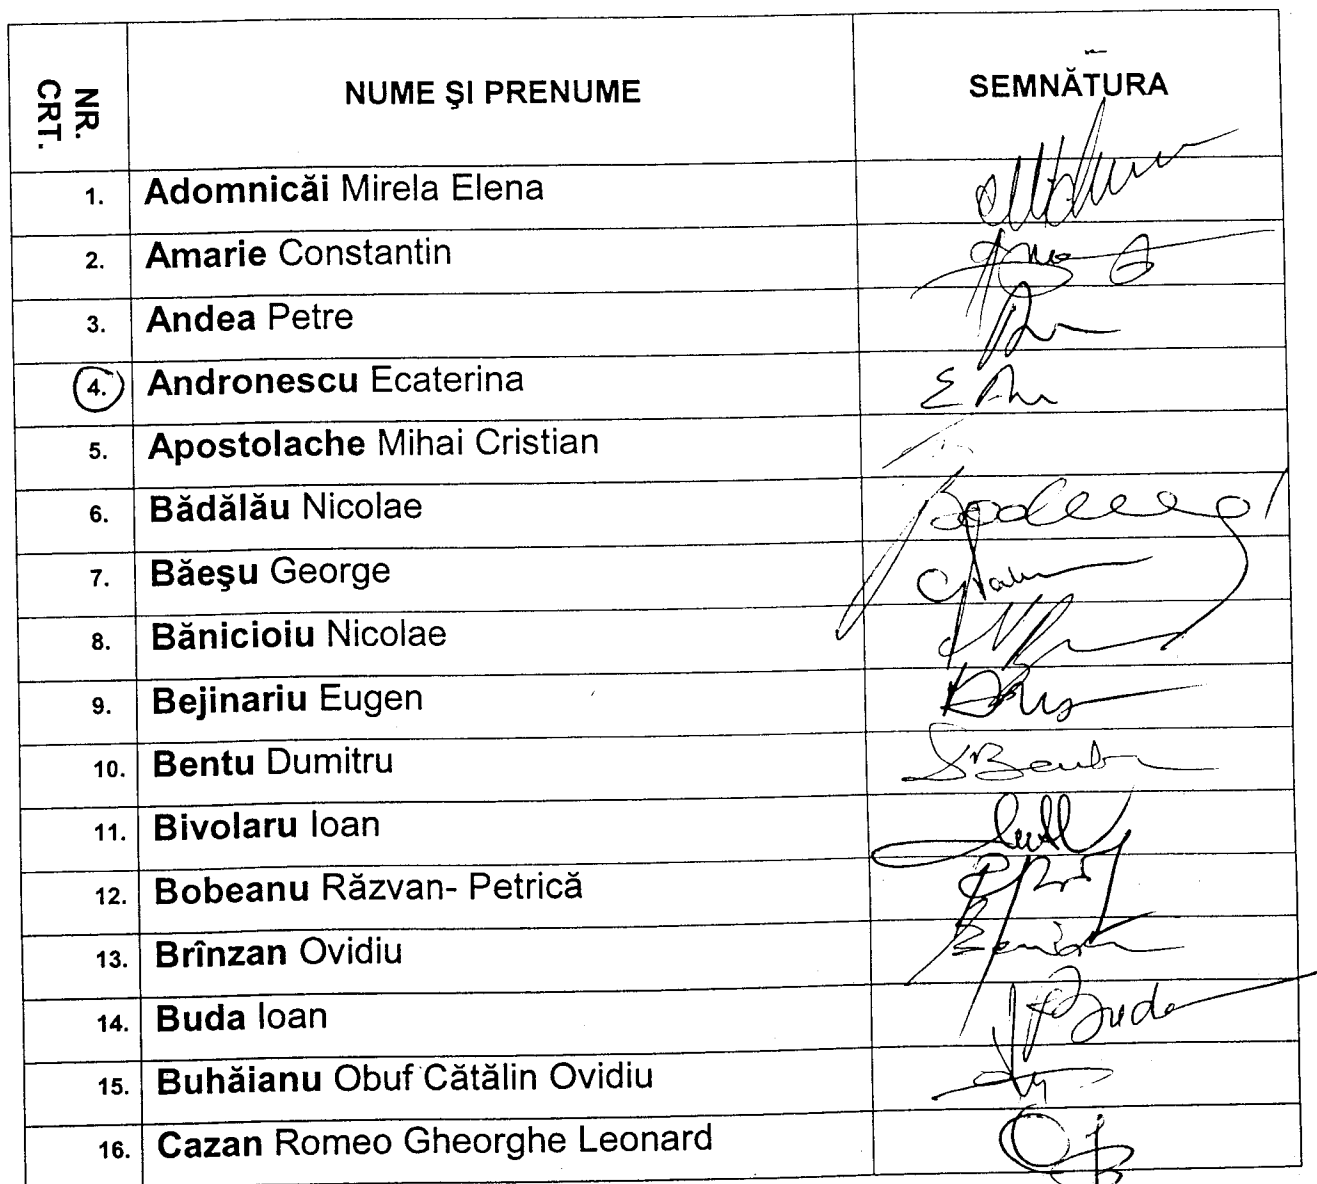 NR. CRT. NUME ŞI PRENUME SEMNĂTURA
1. Adomnicăi Mirela Elena
2. Amarie Constantin
3. Andea Petre
4. Andronescu Ecaterina
5. Apostolache Mihai Cristian
6. Bădălău Nicolae
7. Băeşu George
8. Bănicioiu Nicolae
9. Bejinariu Eugen
10. Bentu Dumitru
11. Bivolaru Ioan
12. Bobeanu Răzvan- Petrică
13. Brînzan Ovidiu
14. Buda Ioan Buda
15. Buhăianu Obuf Cătălin Ovidiu
16. Cazan Romeo Gheorghe Leonard